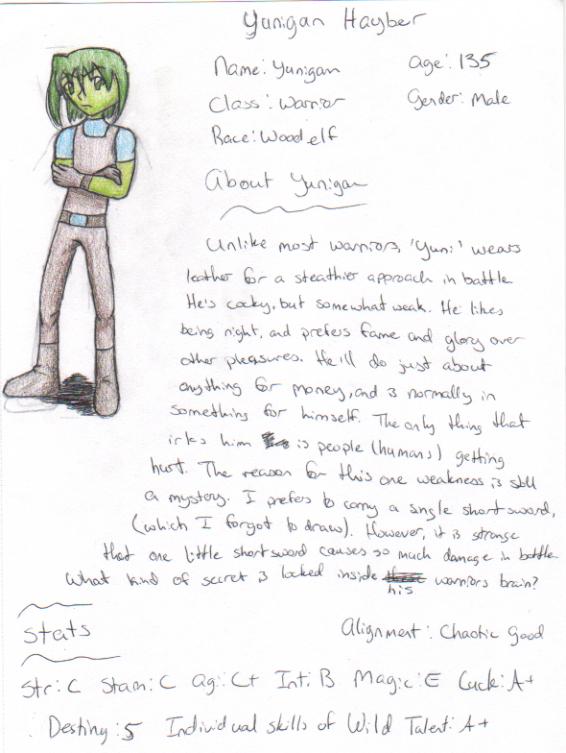 Yunigan Hayber
Name: Yunigan
Age: 135
Class: Warrior
Gender: Male
Race: Wood elf
About Yunigan
Unlike most warriors, 'Yuni' wears
leather for a steathier approach in battle.
He's cocky, but somewhat weak. He likes
being right, and prefers fame and glory over
other pleasures. He'll do just about
anything for money, and is normally in
something for himself. The only thing that
irks him is people (humans) getting
hurt. The reason for this one weakness is still
a mystery. I prefers to carry a single shortsword,
(which I forgot to draw). However, it is strange
that one little shortsword causes so much damage in battle.
What kind of secret is locked inside his warriors brain?
Stats
Alignment: Chaotic Good
Str: C Stam: C Ag: C+ Int: B Magic: E Luck: A+
Destiny: 5 Individual skills of Wild Talent: A+